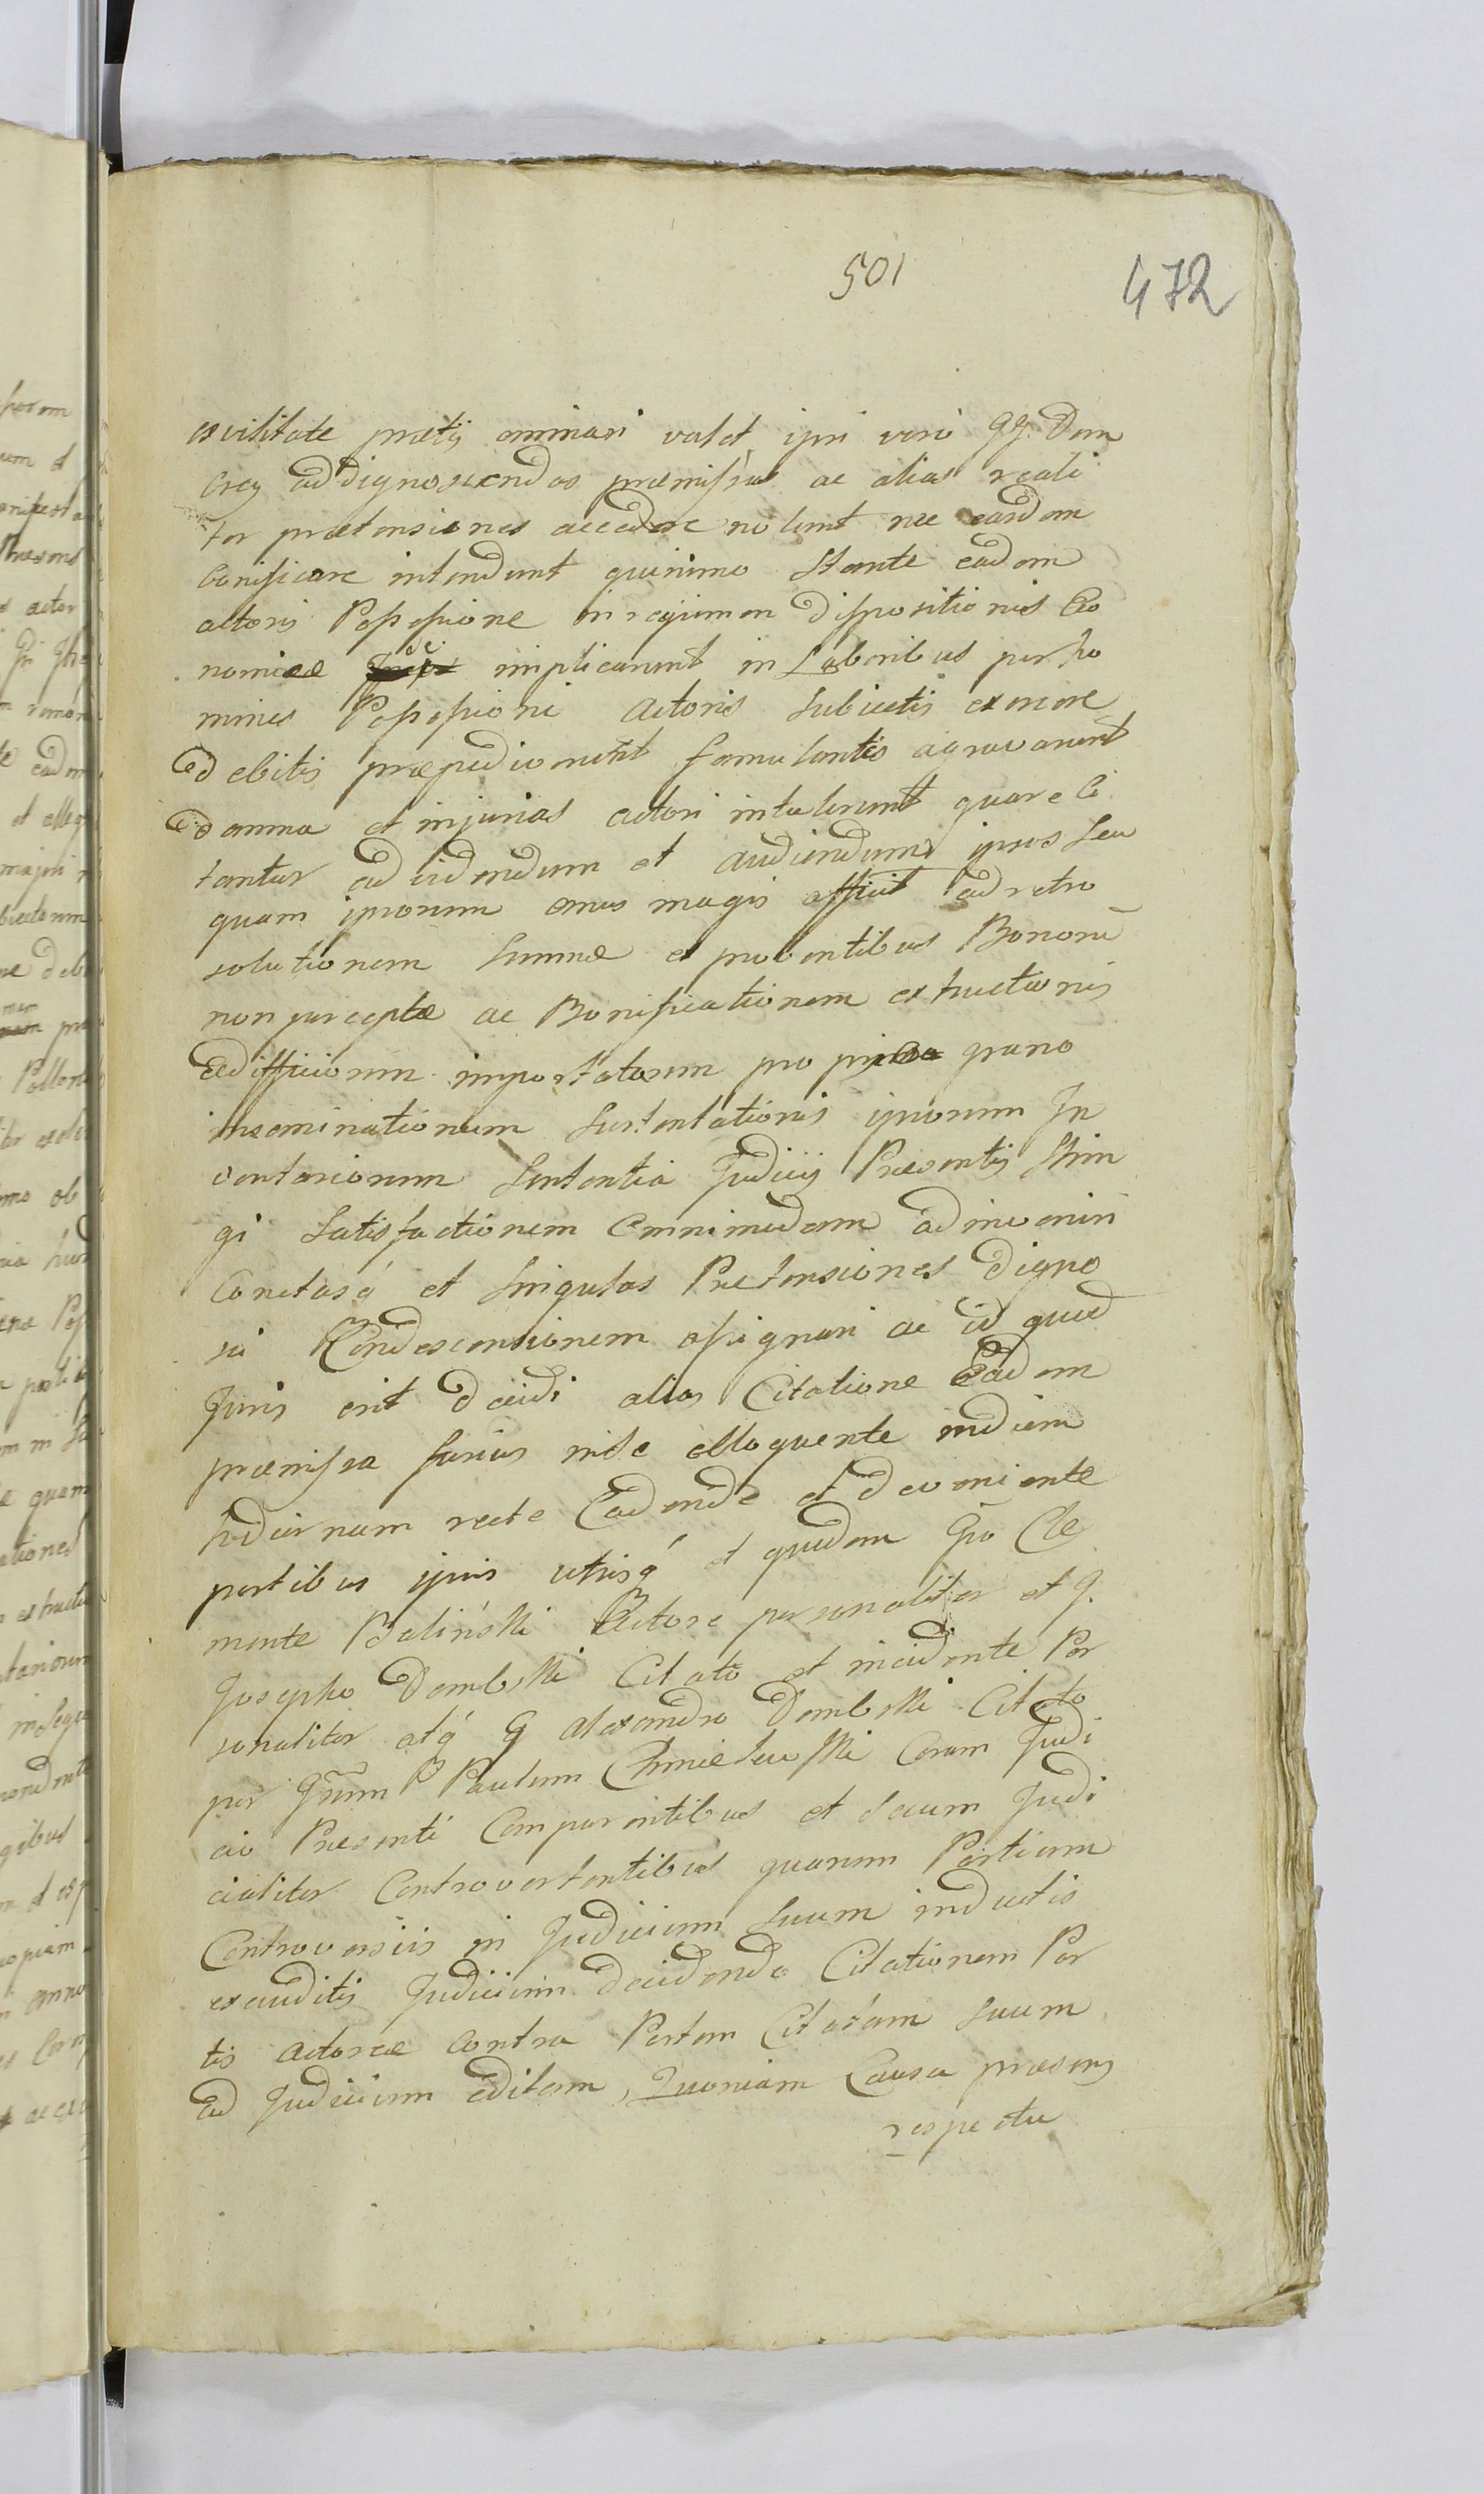 501
472
ex vilitate pretij ominari valet ipsi vero GG. Dem
ad dignoscendas praemissas ac alias reali
ter praetensiones accedere nolunt nec easdem
bonificare intendunt quinimo stante eadem
actoris Possessione in regimen dispositionis Eco
nomicae se implicarunt in Laboribus per ho
mines Possessioni Actoris subiectis ex more
debitis praepedierunt famulantes agravarunt
damna et injurias actori intulerunt quare Ci
tantur ad videndum et audiendum ipsos seu
quam ipsorum onus magis afficit ad retro
solutionem Summae ex proventibus Bonorū
non perceptae ac Bonificationem extructionis
Aedifficiorum importatorum pro grano
inseminationum sustentationis ipsorum In
ventariorum Sententia Judicij Praesentis Strin
gi Satisfactionem omnimodam adinveniri
Cunctasq́ et singulas Pretensiones digno
sci Condescensionem assignari ac id quod
Juris erit decidi alias Citatione Eadem
praemissa fusius in se elloquente in diem
hodiernam recte Cadende et deveniente
partibus ipsis utrisq́ et quidem Gso Cle
mente Baliński Actore personaliter et G.
Josepho Dembski Citato et incidente Per
sonaliter atq́ G Alexandro Dembski Citato
per Gnum Paulum Chmielewski Coram Judi
cio Praesenti Comparentibus et secum Judi
cialiter Controvertentibus quarum Partium
Controversiis in Judicium suum inductis
exauditis Judicium decidendo Citationem Par
tis Actoreae contra Partem Citatam suum
ad Judicium editam, Quoniam Causa praesens
respectu